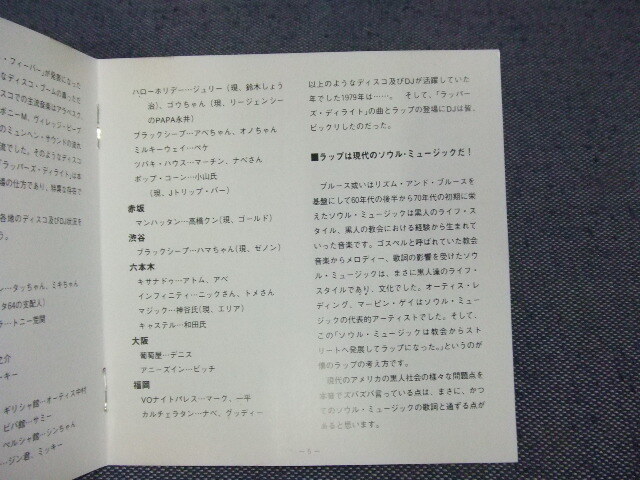 ・フィーバー」が発表になった
なディスコ・ブームの裏ったた
スコでの主流音楽はアラベスク、
ボニーM、ヴィレッジ・ピープ
のミュンヘン・サウンドの流れ
でした。そのようなディスコ
「ラッパーズ・ディライト」は本
場の仕方であり、特異な存在で
各地のディスコ及びDJ状況を
う。
ータッちゃん、ミキちゃん
タ64の支配人)
ラ…トニー笠間
之介
ーキー
ギリシャ館…オーティス中村
ビバ館…サミー
ペルシャ館…シンちゃん
…ジン君、ミッキー
ハローホリデー…ジュリー(現、鈴木しょう
治)、ゴウちゃん(現、リージェンシー
のPAPA永井)
ブラックシープ…アベちゃん、オノちゃん
ミルキーウェイ…ペケ
ツバキ・ハウス…マーチン、ナベさん
ポップ・コーン…小山氏
(現、Jトリップ・バー)
赤坂
マンハッタン…高橋クン(現、ゴールド)
渋谷
ブラックシープ…ハマちゃん(現、ゼノン)
六本木
キサナドゥ…アトム、アベ
インフィニティ…ニックさん、トメさん
マジック…神谷氏(現、エリア)
キャステル…和田氏
大阪
葡萄屋…デニス
アニーズイン…ビッチ
福岡
VOナイトパレス…マーク、一平
カルチェラタン…ナベ、ヴッディー
以上のようなディスコ及びDJが活躍していた
年でした1979年は……。 そして、「ラッパー
ズ・ディライト」の曲とラップの登場にDJは皆、
ビックリしたのだった。
■ラップは現代のソウル・ミュージックだ！
ブルース或いはリズム・アンド・ブルースを
基盤にして60年代の後半から70年代の初期に栄
えたソウル・ミュージックは黒人のライフ・ス
タイル、黒人の教会における経験から生まれて
いった音楽です。ゴスペルと呼ばれていた教会
音楽からメロディー、歌詞の影響を受けたソウ
ル・ミュージックは、まさに黒人達のライフ・
スタイルであり、文化でした。オーティス・レ
ディング、マービン・ゲイはソウル・ミュー
ジックの代表的アーティストでした。そして、
この「ソウル・ミュージックは教会からスト
リートへ発展してラップになった。」というのが
僕のラップの考え方です。
現代のアメリカの黒人社会の様々な問題点を
率直でズバズバ言っている点は、まさに、かつ
てのソウル・ミュージックの歌詞と通ずる点が
あると思います。